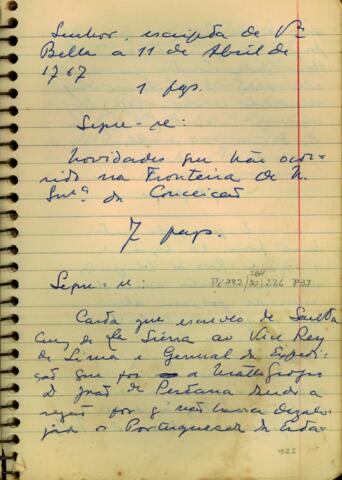 Senhor, escripta de Vª
Bella a 11 de Abril de
1767
1 pag.
Segue-se:
Novidades que hão ocor-
rido na Fronteira de N.
Snrª da Conceicão
7 pags.
Segue-se:
Carta que escreveo de Santa
Cruz de la Sierra ao Vice Rey
de Lima o General da Expedi-
ção que foi a Matto Grosso
D. João de Pestana dando a
rezão por q não havia dezalo-
jado os Portuguezes da Esta-
922